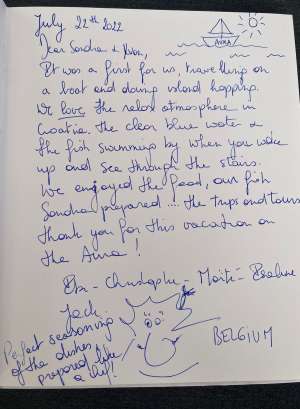 July 22th 2022
AURA
Dear Sandra & Nico,
It was a first for us, travelling on
a boat and doing island hopping.
We love the relax atmosphere in
Croatia. The clear blue water &
the fish swimming by when you wake
up and see through the stairs.
We enjoyed the food, our fish
Sandra prepared .... the trips and tours
thank you for this vacation on
the Aura!
- Christophe - Maité -
Jack
Perfect seasoning
of the dishes,
prepared like
a chef!
BELGIUM